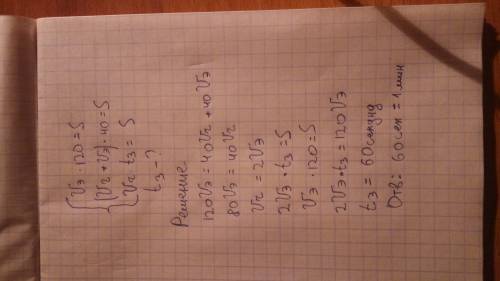 Vэ · 120 = S
(Vг + Vэ) · 40 = S
Vг t₃ = S
t₃ - ?
Решение
120Vэ = 40Vг + 40Vэ
80Vэ = 40Vг
Vг = 2Vэ
2Vэ · t₃ = S
Vэ · 120 = S
2Vэ · t₃ = 120Vэ
t₃ = 60 секунд
Отв: 60 сек = 1 мин